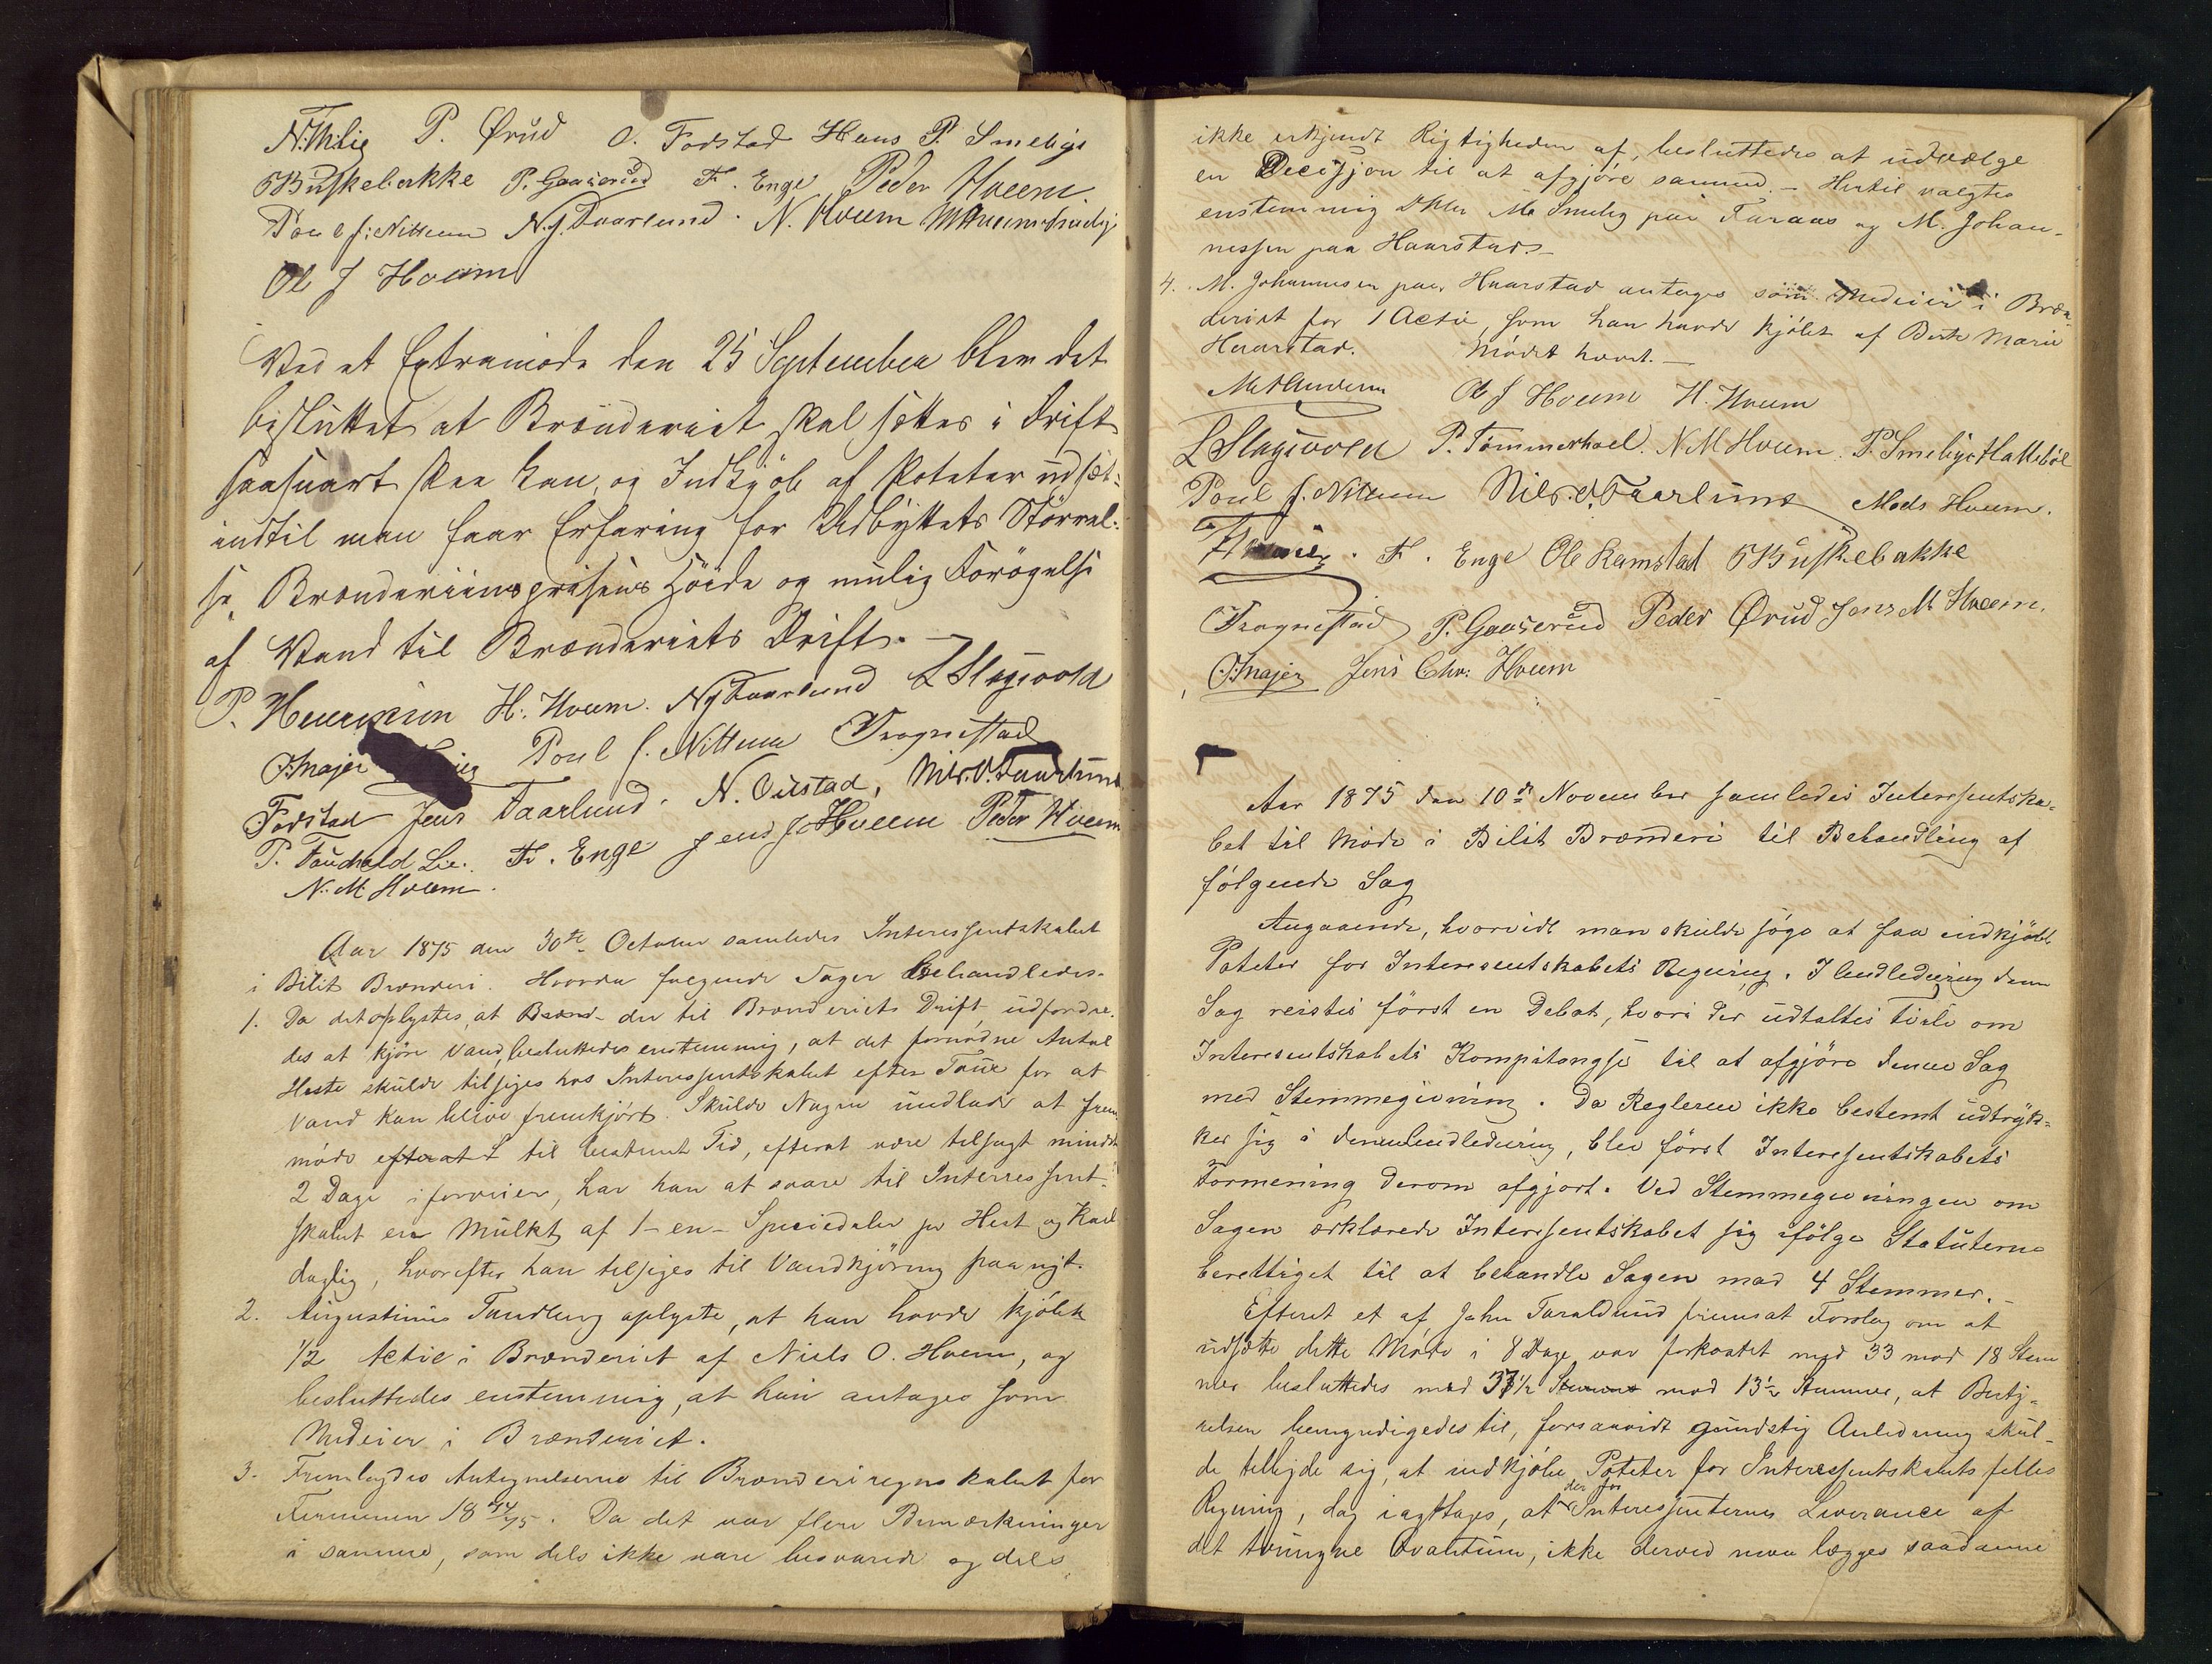 N. Mælig P. Ørud O. Fodstad Hans P. Smebye
Buskebakke P. Gaaserud Fr. Enge Peder Hveem
Poul J. Nittum N. J. Faarlund. N. Hveem
Ole J Hveem
Ved et Extramøde den 25 September blev det
besluttet at Brænderiet skal sættes i Drift
saasnart skee kan, og Indkjøb af Poteter udsæt-
indtil man faar Erfaring for Udbyttets Størrel-
se, Brændeviinsprisens Høide og mulig Forøgelse
af Vand til Brænderiets Drift. —
P. H. Hveem. N J Faarlund L Slagsvold
O. Majer Poul J. Nittum Trognestad
Fodstad Jens Faarlund. N. Oustad, Nils. O. Faarlund
P. Fr. Enge Jens J Hveem Peder Hveem
N. M Hveem.
Aar 1875 den 30te October samledes Interessentskabet
i Bilit Brænderi. Hvorda følgende Sager behandledes.
1. Da det oplystes, at der til Brænderiets Drift udfordre-
des at kjøre Vand, besluttedes enstemmig, at det fornødne Antal
Heste skulde tilsiges hos Interessentskabet efter Tour for at
Vand kan blive fremkjørt. Skulde Nogen undlade at frem
møde efterat til bestemt Tid, efterat være tilsagt mindst
2 Dage iforveien, har han at svare til Interressent-
skabet en Mulkt af 1 – en – Speciedaler pr Hest og Karl
daglig, hvorefter han tilsiges til Vandkjøring paa nyt.
2. Augustinus Sandberg oplyste, at han havde kjøbt
1/2 Actie i Brænderiet af Niels O. Hveem, og
besluttedes enstemmig, at han antages som
Medeier i Brænderiet.
3. Fremlagdes Antegnelserne til Brænderiregnskabet for
Terminen 18 74/75. Da det var flere Bemærkninger
i samme, som dels ikke vare besvarede og dels
ikke erkjendt Rigtigheden af, besluttedes at udvælge
en Decisjon til at afgjøre samme. – Hertil valgtes
enstemmig DHrr M. Smeby paa Furaas og M. Johan-
nessen paa Haarstad. –
4. M. Johannesen paa Haarstad antages som Medeier i Bræn-
deriet for 1 Actie, som han havde kjøbt af Berte Marie
Haarstad. Mødet hævet. —
Ole J Hveem H. Hveem
L Slagsvold P. Tømmerhoel. N M Hveem. P. Smebye Hallebøl
Poul J. Nittum Nils. O. Faarlund Mads Hveem.
Fr. Enge Ole Ramstad Buskebakke
Trognestad P. Gaaserud Peder Ørud Jens M Hveem.
O. Majer Jens Chr: Hveem
Aar 1875 den 10de November samledes Interessentska-
bet til Møde i Bilit Brænderi til Behandling af
følgende Sag
Angaaende, hvorvidt man skulde søge at faa indkjøbt
Poteter for Interesentskabets Regning. I Andledning denne
Sag reistes først en Debat, hvori der udtaltes Tvivl om
Interesentskabets Kompetangse til at afgjøre denne Sag
med Stemmegivning. Da Reglerne ikke bestemt udtryk-
ker sig i denne Andledning, blev først Interesentskabets
Formening derom afgjort. Ved Stemmegivningen om
Sagen erklærede Interesentskabet sig ifølge Statuterne
berettiget til at behandle Sagen mod 4 Stemmer. –
Efteret et af John Faraldsund fremsat Forslag om at
udsætte dette Møde i 8 Dage var forkastet med 33 mod 18 Stem
mer besluttedes med 37 1/2 Stemme mod 13 1/2 Stemmer, at Besty-
relsen bemyndigedes til, forsaavidt gunstig Anledning skul-
de tilbyde sig, at indkjøbe Poteter for Interessentskabets fælles
Regning, dog iagttages, at der for Interessenternes Leverance af
det tvungne Qvantum, ikke derved maa lægges saadanne